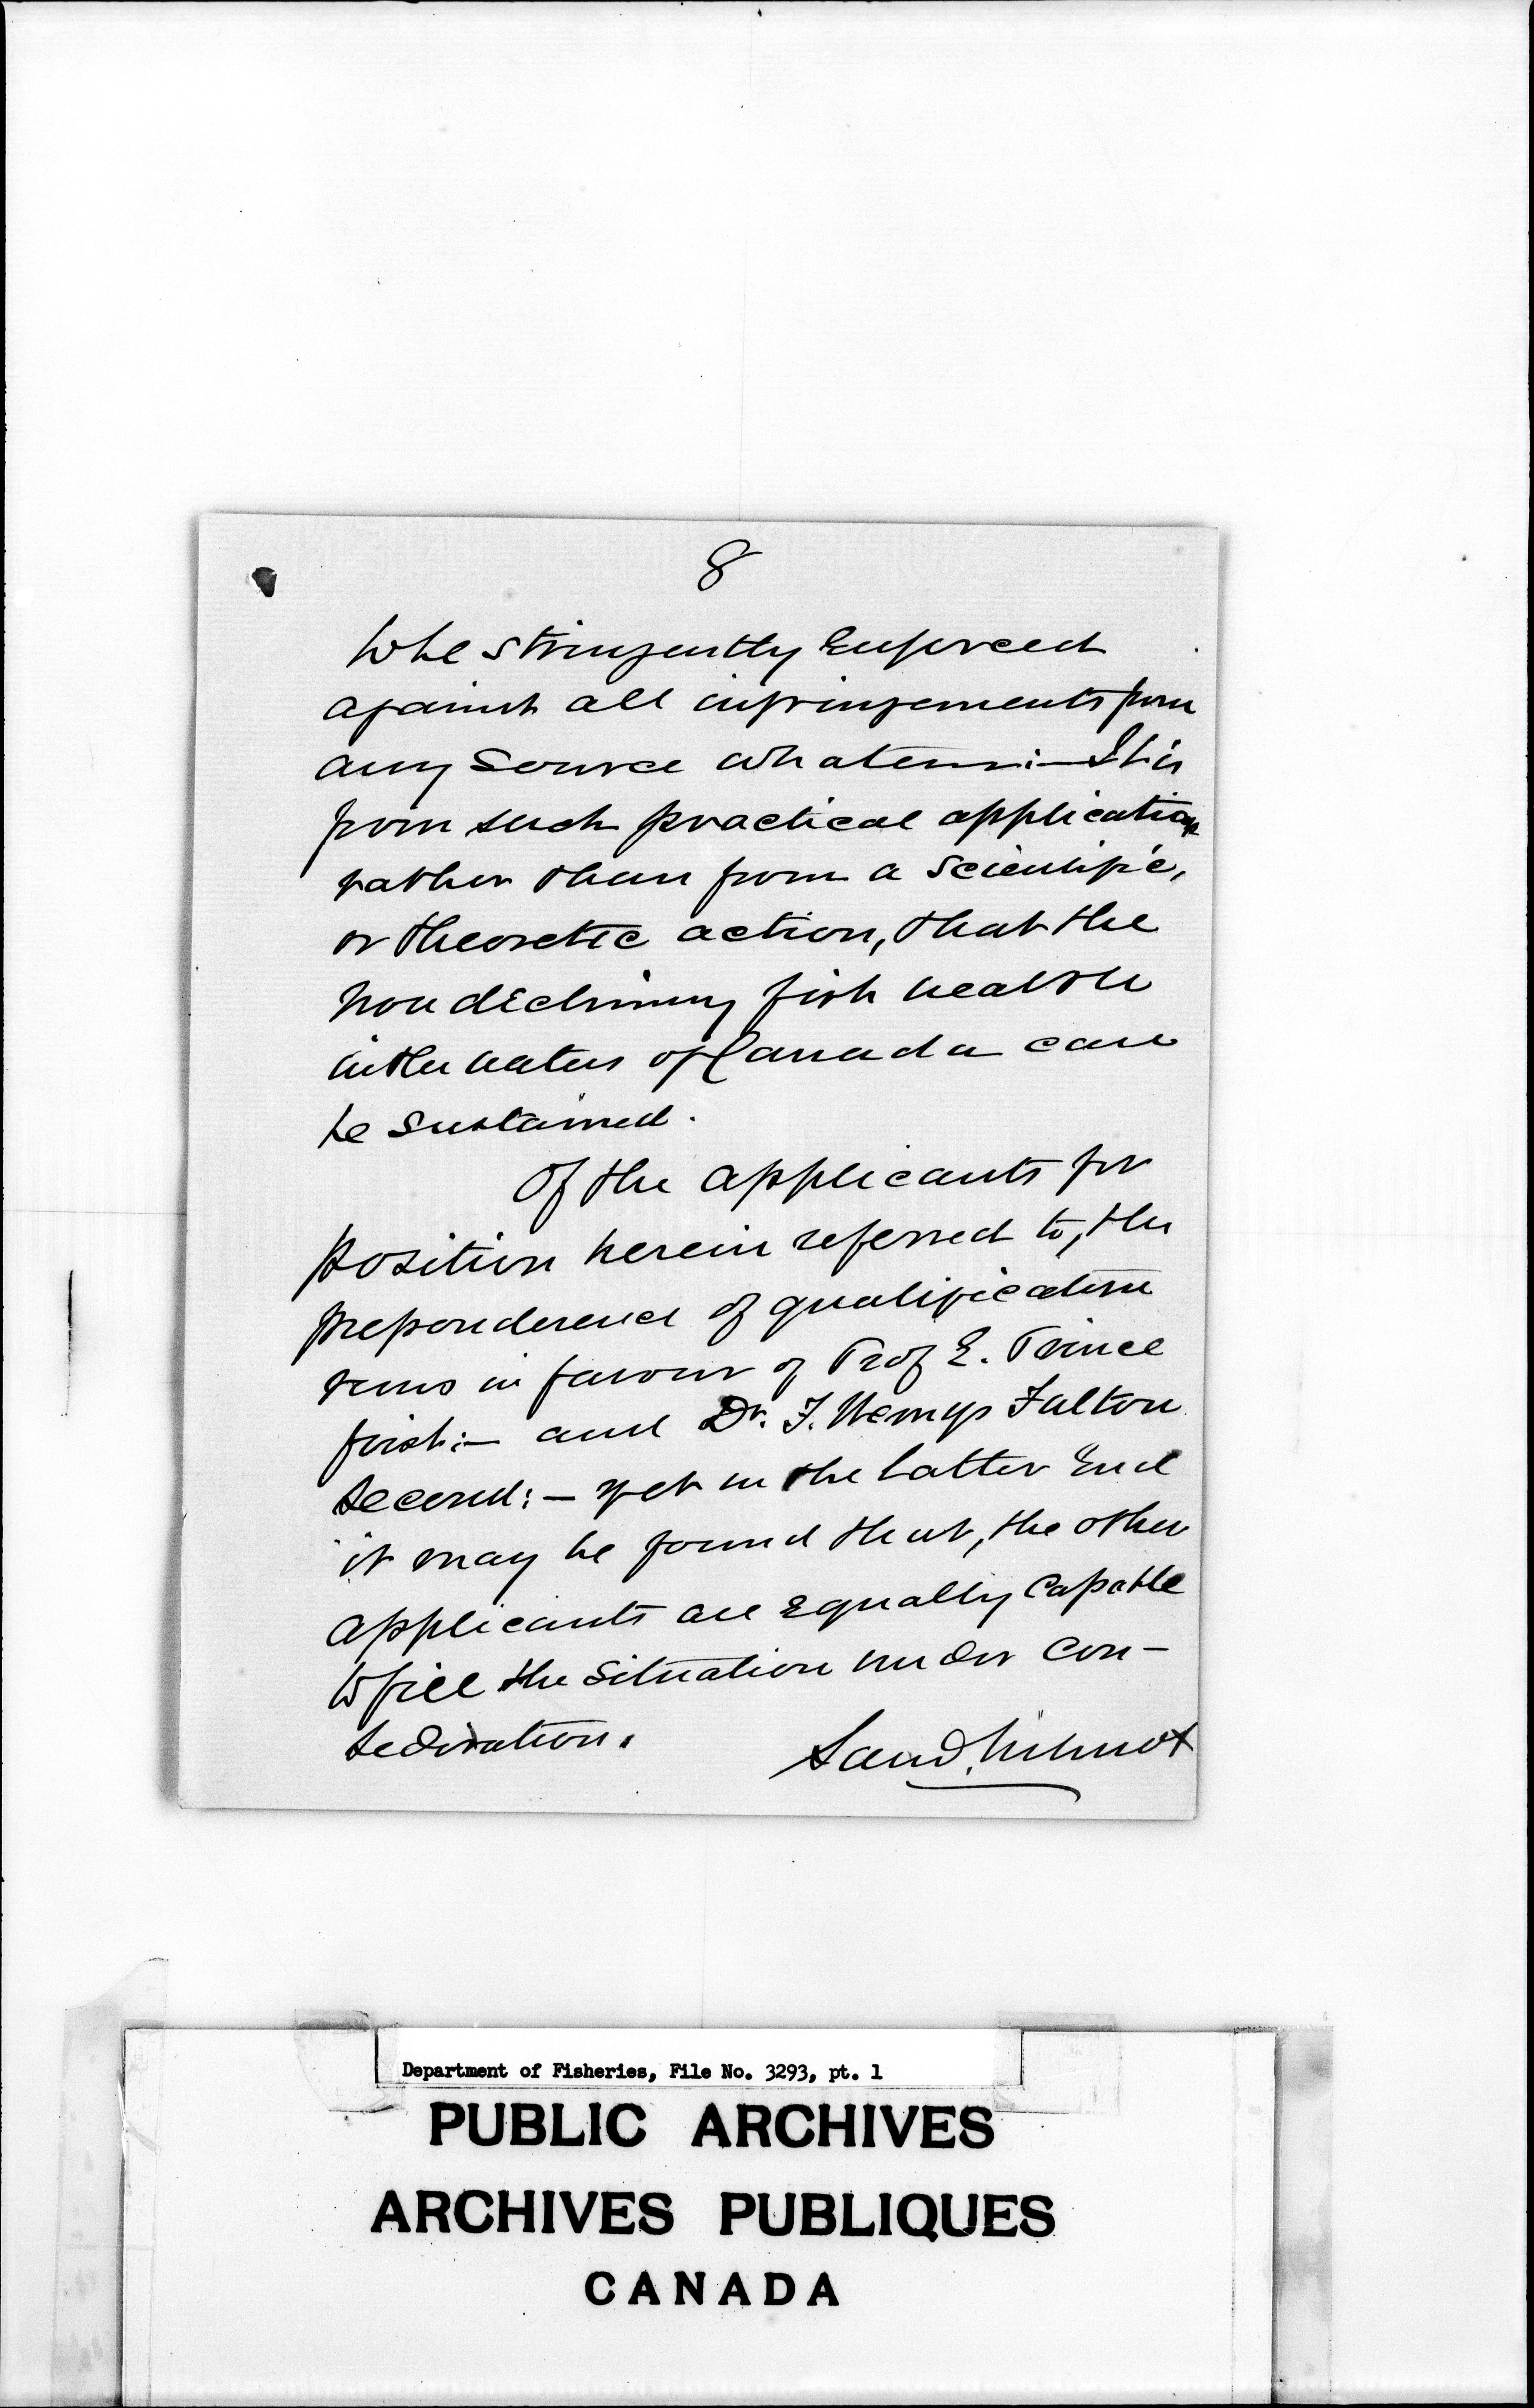 8
to be stringently enforced
against all infringements from
any source whatever:— It is
from such practical application
rather than from a scientific,
or theoretic action, that the
now declining fish wealth
in the waters of Canada can
be sustained.
Of the applicants for
position herein referred to, the
preponderence of qualification
runs in favour of Prof E. Prince
first:— and Dr. T. Wemys Fulton
second:— yet in the latter end
it may be found that, the other
applicants are equally capable
to fill the situation under con-
sideration.
Saml. Wilmot
Department of Fisheries, File No. 3293, pt. 1
PUBLIC ARCHIVES
ARCHIVES PUBLIQUES
CANADA